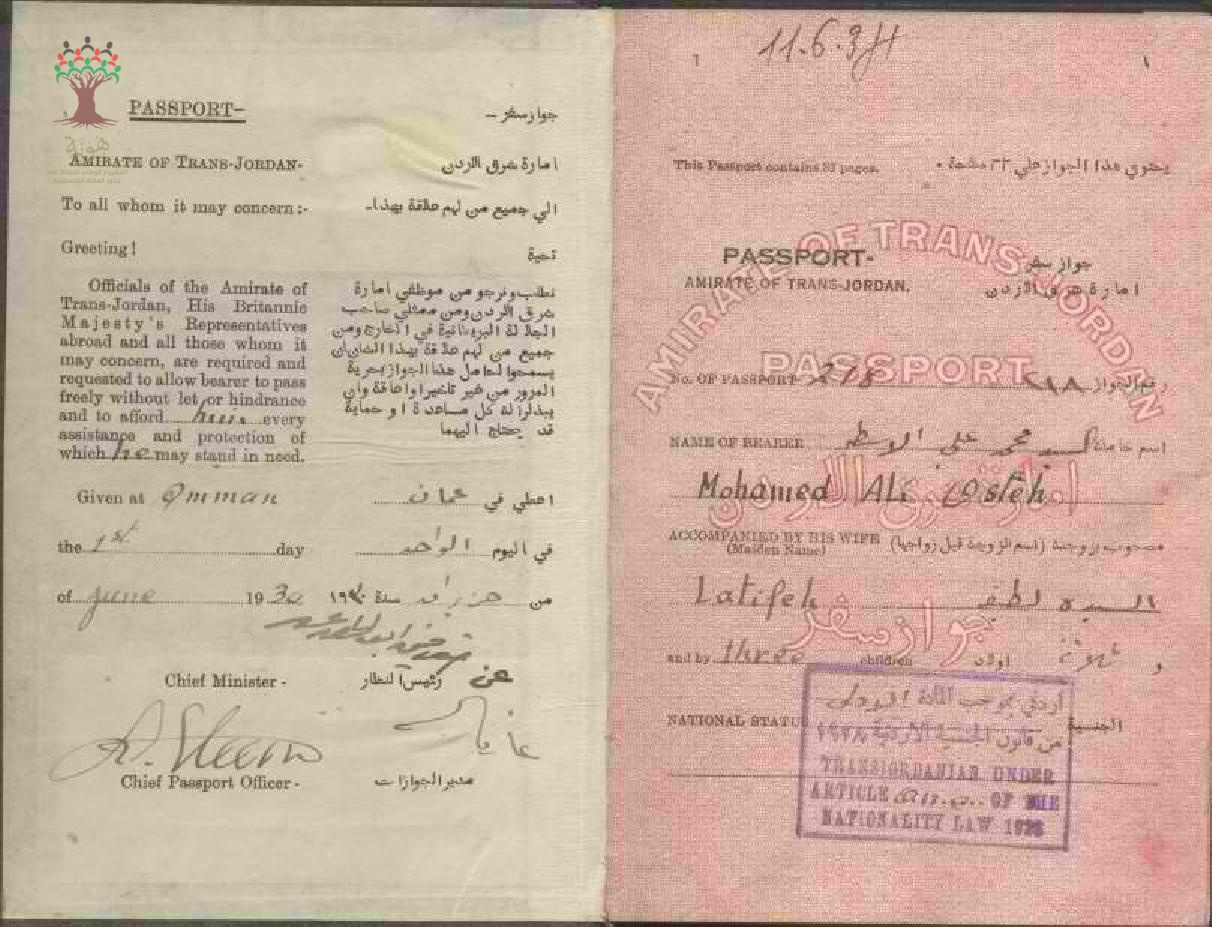 PASSPORT-
جواز سفر -
هوية
AMIRATE OF TRANS-JORDAN-
امارة شرق الاردن
To all whom it may concern :-
الي جميع من لهم علاقة بهذا-
Greeting !
تحية
Officials of the Amirate of
Trans-Jordan, His Britannic
Majesty's Representatives
abroad and all those whom it
may concern, are required and
requested to allow bearer to pass
freely without let or hindrance
and to afford him every
assistance and protection of
which he may stand in need.
نطلب ونرجو من موظفي امارة
شرق الاردن ومن ممثلي صاحب
الجلالة البريطانية في الخارج ومن
جميع من لهم علاقة بهذا الشان ان
يسمحوا لحامل هذا الجواز بحرية
المرور من غير تاخير او اعاقة وان
يبذلوا له كل مساعدة او حماية
قد يحتاج اليهما
Given at Amman
اعطي في عمان
the 1st day
في اليوم الواحد
of June 1930
من حزيران سنة ١٩٣٠
Chief Minister -
عن رئيس النظار
Chief Passport Officer -
مدير الجوازات
11.6.34
1
١
This Passport contains 32 pages.
يحتوي هذا الجواز علي ٣٢ صفحة .
AMIRATE OF TRANS JORDAN
PASSPORT-
جواز سفر
AMIRATE OF TRANS-JORDAN.
امارة شرق الاردن
PASSPORT
No. OF PASSPORT
رقم الجواز
NAME OF BEARER
اسم حامله السيد محمد علي الاسطه
Mohamed Ali Osteh
امارة شرق الاردن
ACCOMPANIED BY HIS WIFE
(Maiden Name)
مصحوب بزوجته (اسم الزوجة قبل زواجها)
Latifeh
السيده لطفيه
جواز سفر
and by three children
و ثلاثة اولاد
NATIONAL STATUS
الجنسية
أردني بموجب المادة الاولى
من قانون الجنسية الاردنية ١٩٢٨
TRANSJORDANIAN UNDER
ARTICLE OF THE
NATIONALITY LAW 1928